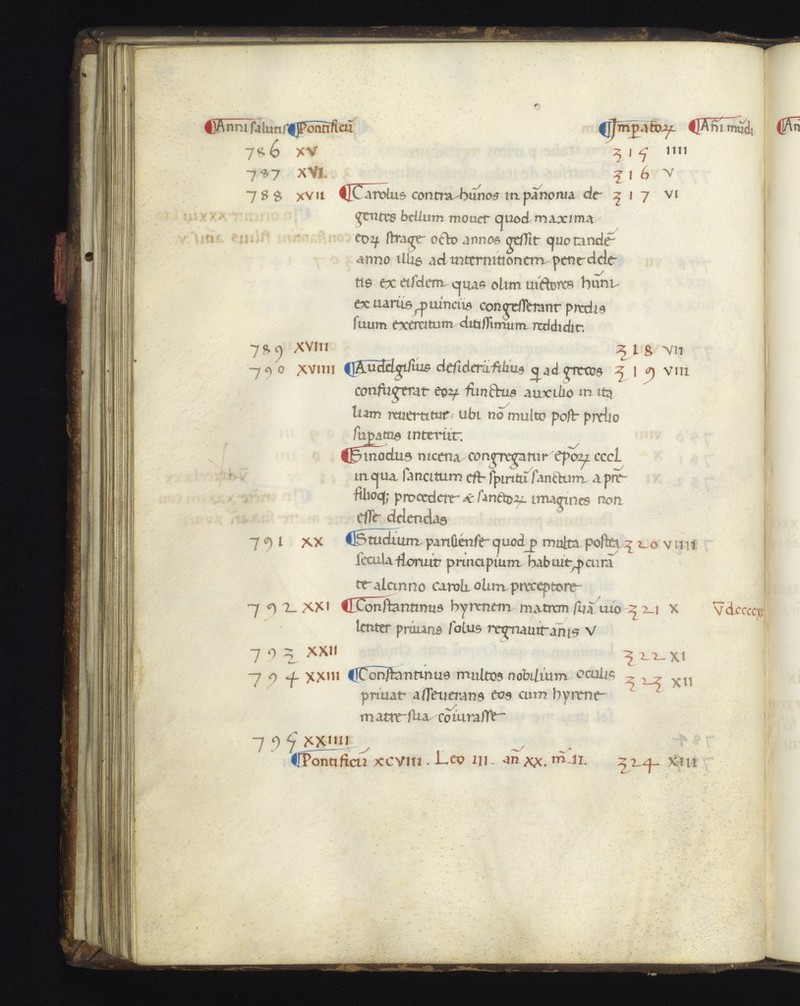 Anni salutis Pontificū Impatoꝝ Añi mūdi
786 XV 315 IIII
787 XVI. 316 V
788 XVII Carolus contra hūnos in pānonia de 317 VI
gentes bellum mouet quod maxima
eoꝝ strage octo annos gessit quo tandē
anno illis ad internitionem pene dele
tis ex eisdem quas olim uictores hūni
ex uariis ꝓuinciis congesserant predis
suum exercitum ditissimum reddidit.
789 XVIII 318 VII
790 XVIIII Audelgisius desiderii filius q ad grecos 319 VIII
confugerat eoꝝ functus auxilio in ita
liam reuertitur, ubi nō multo post prelio
supatus interiit.
Sinodus nicena congregatur epōꝝ cccL
in qua sancitum est spiritū sanctum a pře
filioq; procedere & sanctoꝝ imagines non
esse delendas
791 XX Studium parisiense quod ꝑ multa postea 320 VIIII
secula floruit principium habuit ꝓcurā
te alcinno caroli olim preceptore
792 XXI Constantinus hyrenem matrem suā uio 321 X Vdcccc
lenter priuans solus regnauit anīs V
793 XXII 322 XI
794 XXIII Constantinus multos nobilium oculis 323 XII
priuat asseuerans eos cum hyrene
matre sua cōiurasse
795 XXIIII
Pontificū XCVIII. Leo III. añ XX. m̄.II. 324 XIII